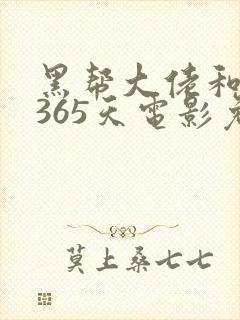 黑帮大佬和
365天电影
莫上桑七七